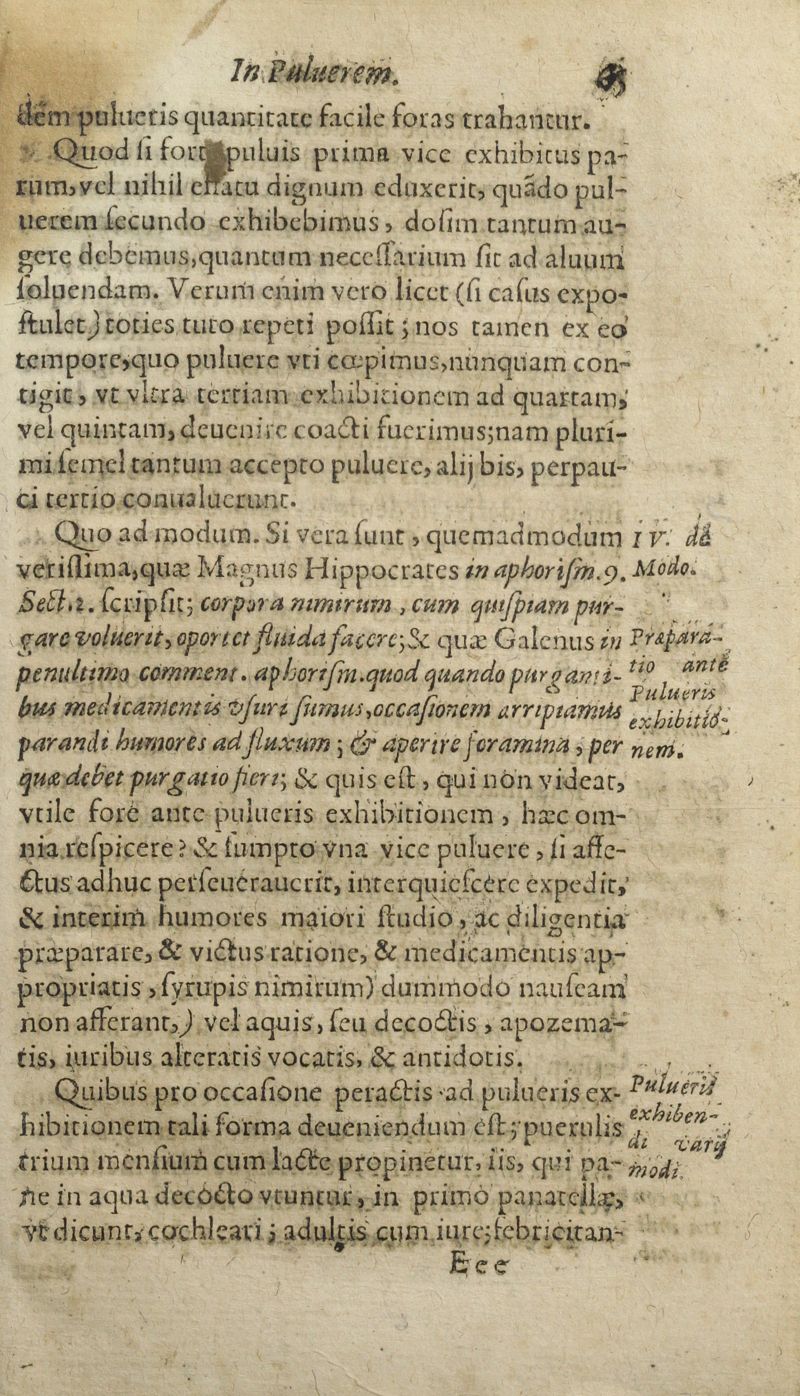 In Puluerem.
dem pulueris quantitate facile foras trahantur.
Quod ſi fort puluis prima vice exhibitus pa-
rum, vel nihil effatu dignum eduxerit, quãdo pul-
uerem ſecundo exhibebimus, doſim tantum au-
gere debemus, quantum neceſſarium ſit ad aluum
ſoluendam. Verum enim vero licet (ſi caſus expo-
ſtulet) toties tuto repeti poſſit; nos tamen ex eo
tempore, quo puluere vti cœpimus, nunquam con-
tigit, vt vltra tertiam exhibitionem ad quartam,
vel quintam, deuenire coacti fuerimus; nam pluri-
mi ſemel tantum accepto puluere, alij bis, perpau-
ci tertio conualuerunt.
Quo ad modum. Si vera ſunt, quemadmodum
veriſſima, quæ Magnus Hippocrates in aphoriſm. 9.
Sect. 2. ſcripſit; corpora nimirum, cum quiſpiam pur-
gare voluerit, oportet fluida facere; & quæ Galenus in
penultimo comment. aphoriſm. quod quando purganti-
bus medicamentis vſuri ſumus, occaſionem arripiamus
parandi humores ad fluxum; & aperire foramina, per
quæ debet purgatio fieri; & quis eſt, qui non videat,
vtile fore ante pulueris exhibitionem, hæc om-
nia reſpicere? & ſumpto vna vice puluere, ſi affe-
ctus adhuc perſeuerauerit, interquieſcere expedit,
& interim humores maiori ſtudio, ac diligentia
præparare, & victus ratione, & medicamentis ap-
propriatis, ſyrupis nimirum) dummodo nauſeam
non afferant,) vel aquis, ſeu decoctis, apozema-
tis, iuribus alteratis vocatis, & antidotis.
Quibus pro occaſione peractis ad pulueris ex-
hibitionem tali forma deueniendum eſt; puerulis
trium menſium cum lacte propinetur, iis, qui pa-
ne in aqua decocto vtuntur, in primo panatellæ,
vt dicunt, cochleari; adultis cum iure; febricitan-
Eee
IV. de
Modo.
Præpara-
tio ante
Pulueris
exhibitio-
nem.
Pulueris
exhiben-
di varij
modi.